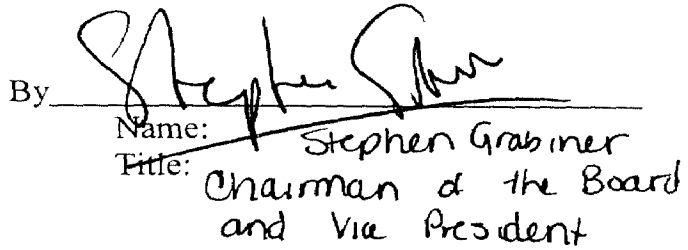 By Stephen
Name: Stephen Grabiner
Title: Chairman of the Board
and Vice President